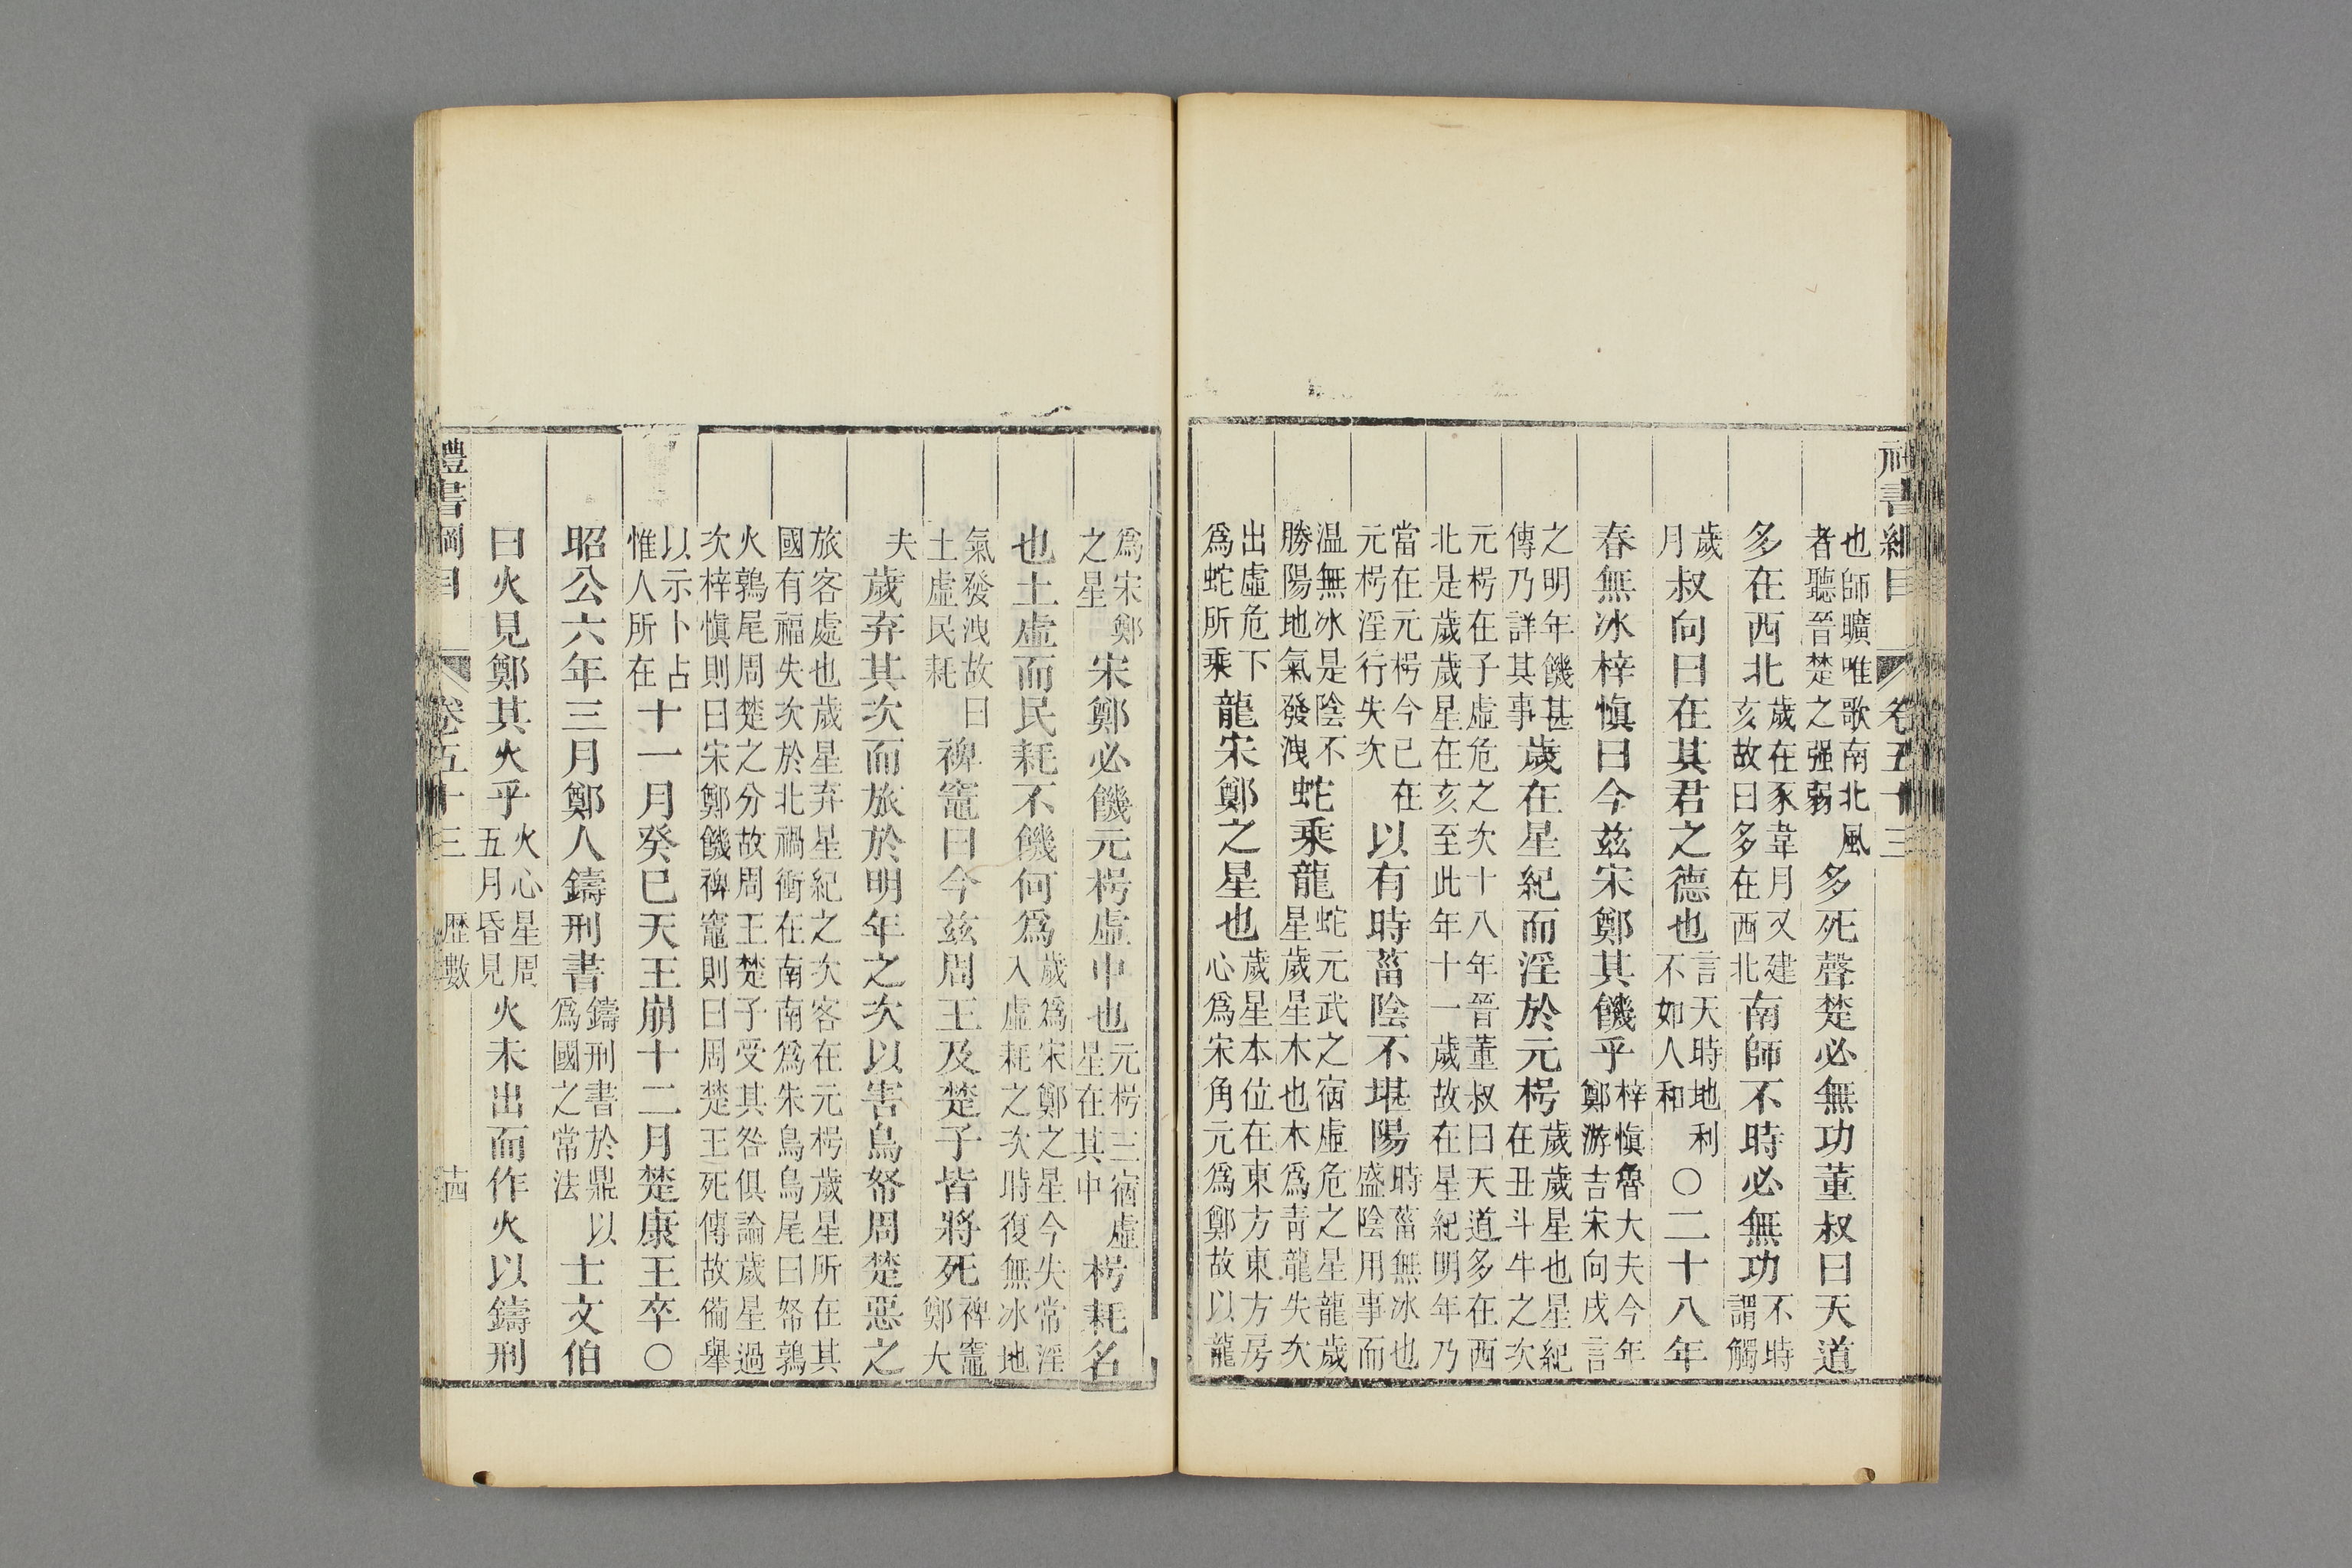 禮書綱目 卷五十三
也師曠唯歌南北風者聽晉楚之强弱多死聲楚必無功董叔曰天道
多在西北歲在豕韋月又建亥故曰多在西北南師不時必無功不時謂觸
歲月叔向曰在其君之德也言天時地利不如人和○二十八年
春無冰梓慎曰今兹宋鄭其饑乎梓慎魯大夫今年鄭游吉宋向戌言
之明年饑甚傳乃詳其事歲在星紀而淫於元枵歲歲星也星紀在丑斗牛之次
元枵在子虛危之次十八年晉董叔曰天道多在西北是歲歲星在亥至此年十一歲故在星紀明年乃
當在元枵今已在元枵淫行失次以有時菑陰不堪陽時菑無冰也盛陰用事而
温無冰是陰不勝陽地氣發洩蛇乘龍蛇元武之宿虛危之星龍歲星歲星木也木爲青龍失次
出虛危下爲蛇所乘龍宋鄭之星也歲星本位在東方東方房心爲宋角元爲鄭故以龍
爲宋鄭之星宋鄭必饑元枵虛中也元枵三宿虛星在其中枵耗名
也土虛而民耗不饑何爲歲爲宋鄭之星今失常淫入虛耗之次時復無冰地
氣發洩故曰土虛民耗裨竈曰今兹周王及楚子皆將死裨竈鄭大
夫歲弃其次而旅於明年之次以害鳥帑周楚惡之
旅客處也歲星弃星紀之次客在元枵歲星所在其國有福失次於北禍衝在南南爲朱鳥鳥尾曰帑鶉
火鶉尾周楚之分故周王楚子受其咎俱論歲星過次梓慎則曰宋鄭饑裨竈則曰周楚王死傳故備舉
以示卜占惟人所在十一月癸巳天王崩十二月楚康王卒○
昭公六年三月鄭人鑄刑書鑄刑書於鼎以爲國之常法士文伯
曰火見鄭其火乎火心星周五月昏見火未出而作火以鑄刑
禮書綱目 卷五十三 歷數